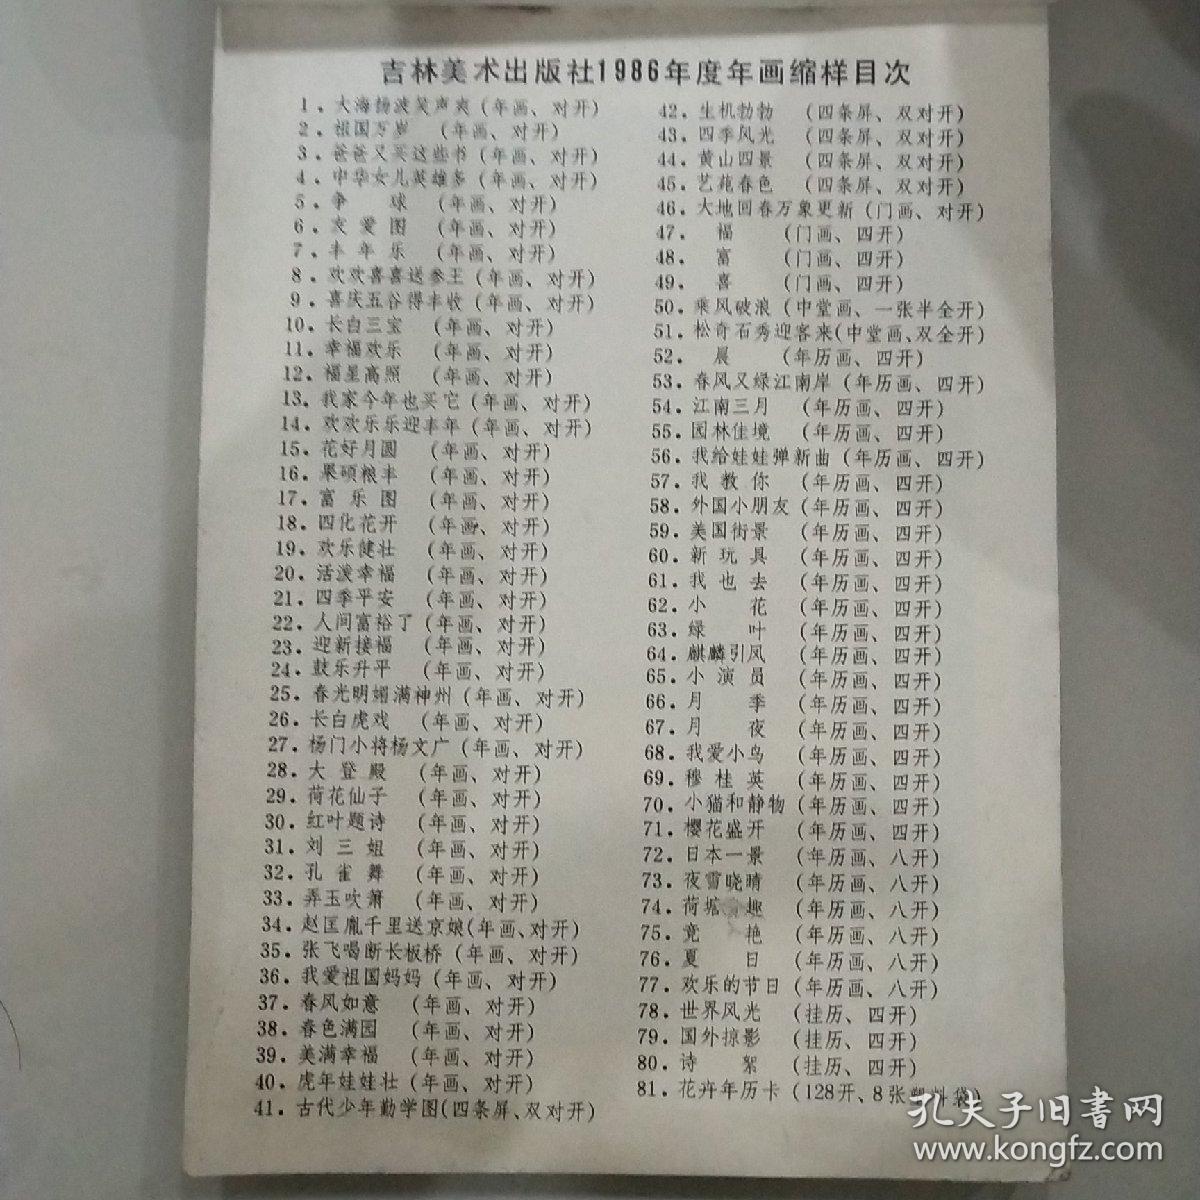 吉林美术出版社1986年度年画缩样目次
1．大海扬波笑声爽（年画、对开）
2．祖国万岁（年画、对开）
3．爸爸又买这些书（年画、对开）
4．中华女儿英雄多（年画、对开）
5．争球（年画、对开）
6．友爱图（年画、对开）
7．丰年乐（年画、对开）
8．欢欢喜喜送参王（年画、对开）
9．喜庆五谷得丰收（年画、对开）
10．长白三宝（年画、对开）
11．幸福欢乐（年画、对开）
12．福星高照（年画、对开）
13．我家今年也买它（年画、对开）
14．欢欢乐乐迎丰年（年画、对开）
15．花好月圆（年画、对开）
16．果硕粮丰（年画、对开）
17．富乐图（年画、对开）
18．四化花开（年画、对开）
19．欢乐健壮（年画、对开）
20．活泼幸福（年画、对开）
21．四季平安（年画、对开）
22．人间富裕了（年画、对开）
23．迎新接福（年画、对开）
24．鼓乐升平（年画、对开）
25．春光明媚满神州（年画、对开）
26．长白虎戏（年画、对开）
27．杨门小将杨文广（年画、对开）
28．大登殿（年画、对开）
29．荷花仙子（年画、对开）
30．红叶题诗（年画、对开）
31．刘三姐（年画、对开）
32．孔雀舞（年画、对开）
33．弄玉吹箫（年画、对开）
34．赵匡胤千里送京娘(年画、对开)
35．张飞喝断长板桥（年画、对开）
36．我爱祖国妈妈（年画、对开）
37．春风如意（年画、对开）
38．春色满园（年画、对开）
39．美满幸福（年画、对开）
40．虎年娃娃壮（年画、对开）
41．古代少年勤学图(四条屏、双对开)
42．生机勃勃（四条屏、双对开）
43．四季风光（四条屏、双对开）
44．黄山四景（四条屏、双对开）
45．艺苑春色（四条屏、双对开）
46．大地回春万象更新（门画、对开）
47．福（门画、四开）
48．富（门画、四开）
49．喜（门画、四开）
50．乘风破浪（中堂画、一张半全开）
51．松奇石秀迎客来(中堂画、双全开)
52．晨（年历画、四开）
53．春风又绿江南岸（年历画、四开）
54．江南三月（年历画、四开）
55．园林佳境（年历画、四开）
56．我给娃娃弹新曲（年历画、四开）
57．我教你（年历画、四开）
58．外国小朋友（年历画、四开）
59．美国街景（年历画、四开）
60．新玩具（年历画、四开）
61．我也去（年历画、四开）
62．小花（年历画、四开）
63．绿叶（年历画、四开）
64．麒麟引凤（年历画、四开）
65．小演员（年历画、四开）
66．月季（年历画、四开）
67．月夜（年历画、四开）
68．我爱小鸟（年历画、四开）
69．穆桂英（年历画、四开）
70．小猫和静物（年历画、四开）
71．樱花盛开（年历画、四开）
72．日本一景（年历画、八开）
73．夜雪晓晴（年历画、八开）
74．荷塘趣（年历画、八开）
75．竞艳（年历画、八开）
76．夏日（年历画、八开）
77．欢乐的节日（年历画、八开）
78．世界风光（挂历、四开）
79．国外掠影（挂历、四开）
80．诗絮（挂历、四开）
81．花卉年历卡（128开、8张塑料袋）
孔夫子旧书网
www.kongfz.com